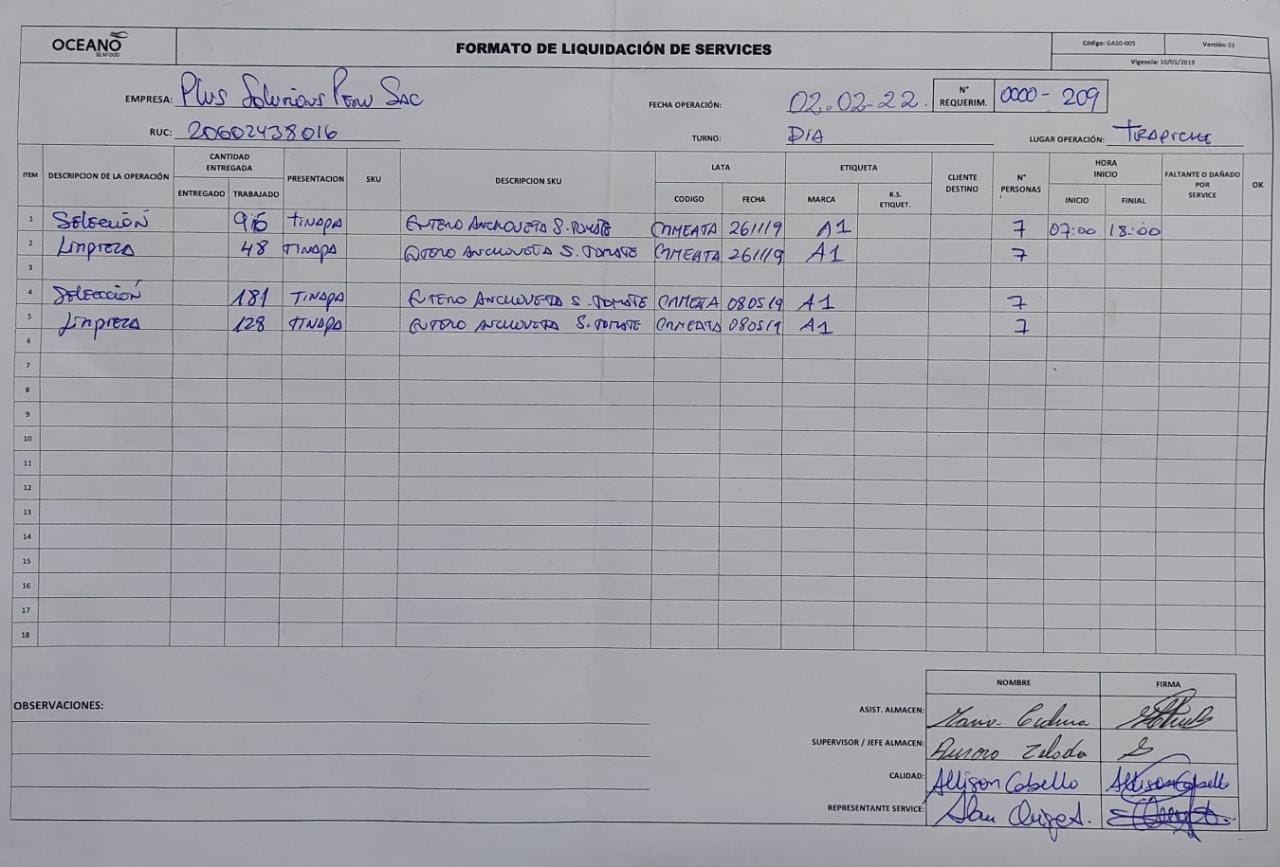 OCEANO SEAFOOD
FORMATO DE LIQUIDACIÓN DE SERVICES
Código: GASO-005 Versión: 02
Vigencia: 10/05/2019
EMPRESA: Plus Solutions Peru SAC FECHA OPERACIÓN: 02.02.22. N° REQUERIM. 0000-209
RUC: 20602438016 TURNO: DIA LUGAR OPERACIÓN: TRAPICHE
ITEM DESCRIPCION DE LA OPERACIÓN CANTIDAD ENTREGADA PRESENTACION SKU DESCRIPCION SKU LATA ETIQUETA CLIENTE DESTINO N° PERSONAS HORA INICIO FALTANTE O DAÑADO POR SERVICE OK
ENTREGADO TRABAJADO CODIGO FECHA MARCA R.S. ETIQUET. INICIO FINIAL
1 Selección TINAPA ENTERO ANCHOVETA S. TOMATE 261119 A1 7 07:00 18:00
2 Limpieza 48 TINAPA ENTERO ANCHOVETA S. TOMATE 261119 A1 7
3
4 Selección 181 TINAPA ENTERO ANCHOVETA S. TOMATE 080519 A1 7
5 Limpieza 128 TINAPA ENTERO ANCHOVETA S. TOMATE 080519 A1 7
6
7
8
9
10
11
12
13
14
15
16
17
18
NOMBRE FIRMA
OBSERVACIONES:
ASIST. ALMACEN:
SUPERVISOR / JEFE ALMACEN:
CALIDAD: Allison Cabello Allison Cabello
REPRESENTANTE SERVICE: Alan